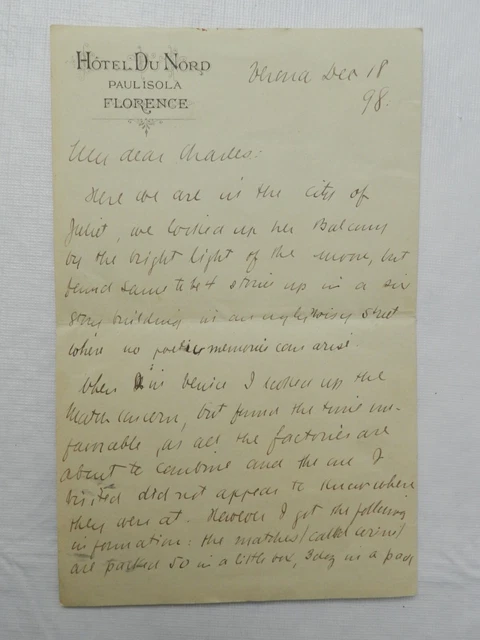 HÔTEL DU NORD
PAUL ISOLA
FLORENCE
Verona Dec 18
98.
My dear Charles:
Here we are in the city of
Juliet, we looked up her Balcony
by the bright light of the moon, but
found same to be 4 stories up in a six
story building in an ugly noisy street
where no poetic memories can arise
When in Venice I looked up the
Match concern, but found the time un-
favorable, as all the factories are
about to combine and the one I
visited did not appear to know where
they were at. However I got the following
information: the matches (called cerini)
are packed 50 in a little box, 3 doz in a pack